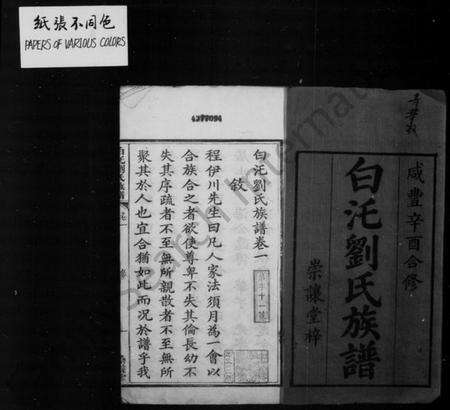 紙張不同色
PAPERS OF VARIOUS COLORS
咸豐辛酉合修
白沱劉氏族譜
崇讓堂梓
4277094
白沱劉氏族譜卷一
敘
程伊川先生曰凡人家法須月為一會以
合族合之者欲使尊卑不失其倫長幼不
失其序疏者不至無所親散者不至無所
聚其於人也宜合猶如此而况於譜乎我